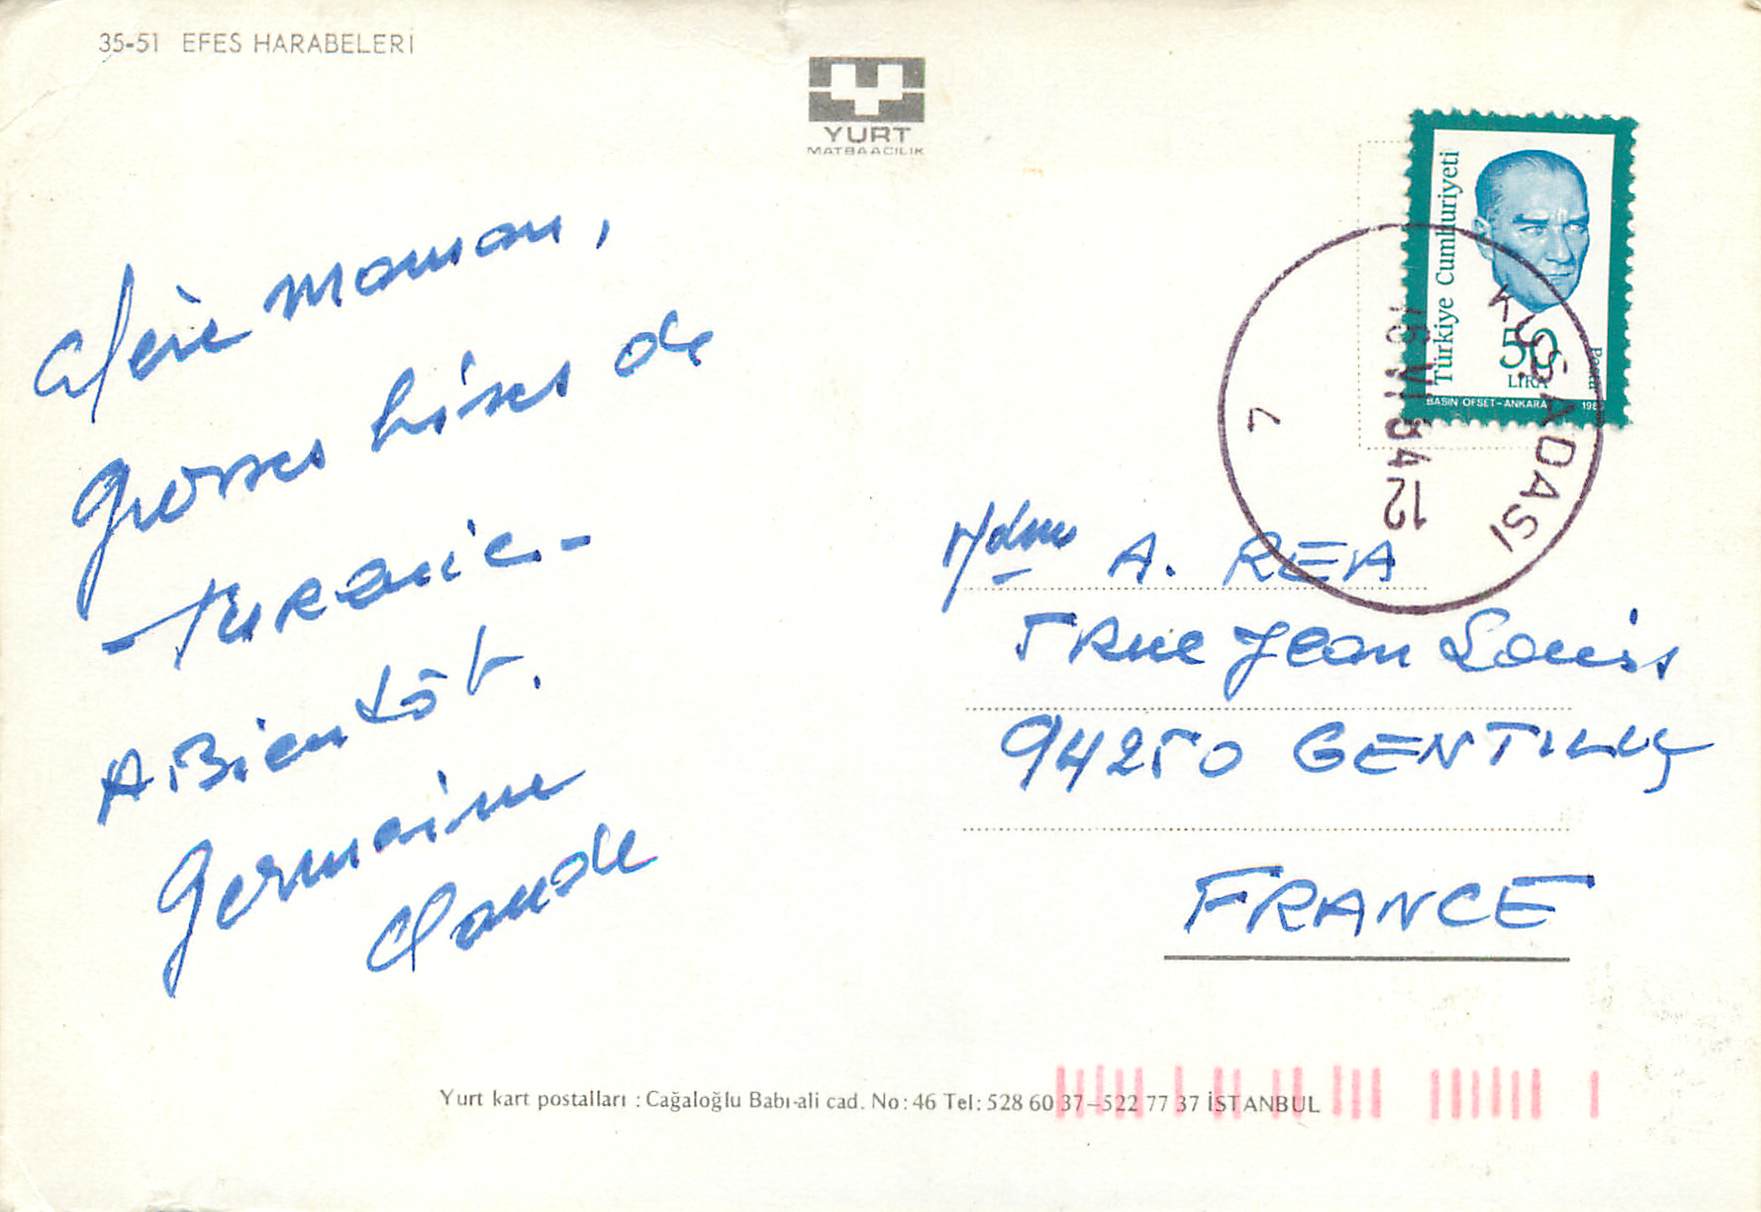 35-51 EFES HARABELERİ
YURT
MATBAACILIK
Türkiye Cumhuriyeti
50
LİRA
BASIN OFSET-ANKARA
KUŞADASI
VI 84 12
chère maman,
grosses bises de
turquie-
A Bientôt.
Germaine
Claude
Mdme A. REA
5 Rue Jean Louis
94250 GENTILLY
FRANCE
Yurt kart postalları : Cağaloğlu Babı-ali cad. No: 46 Tel: 528 60 37-522 77 37 İSTANBUL